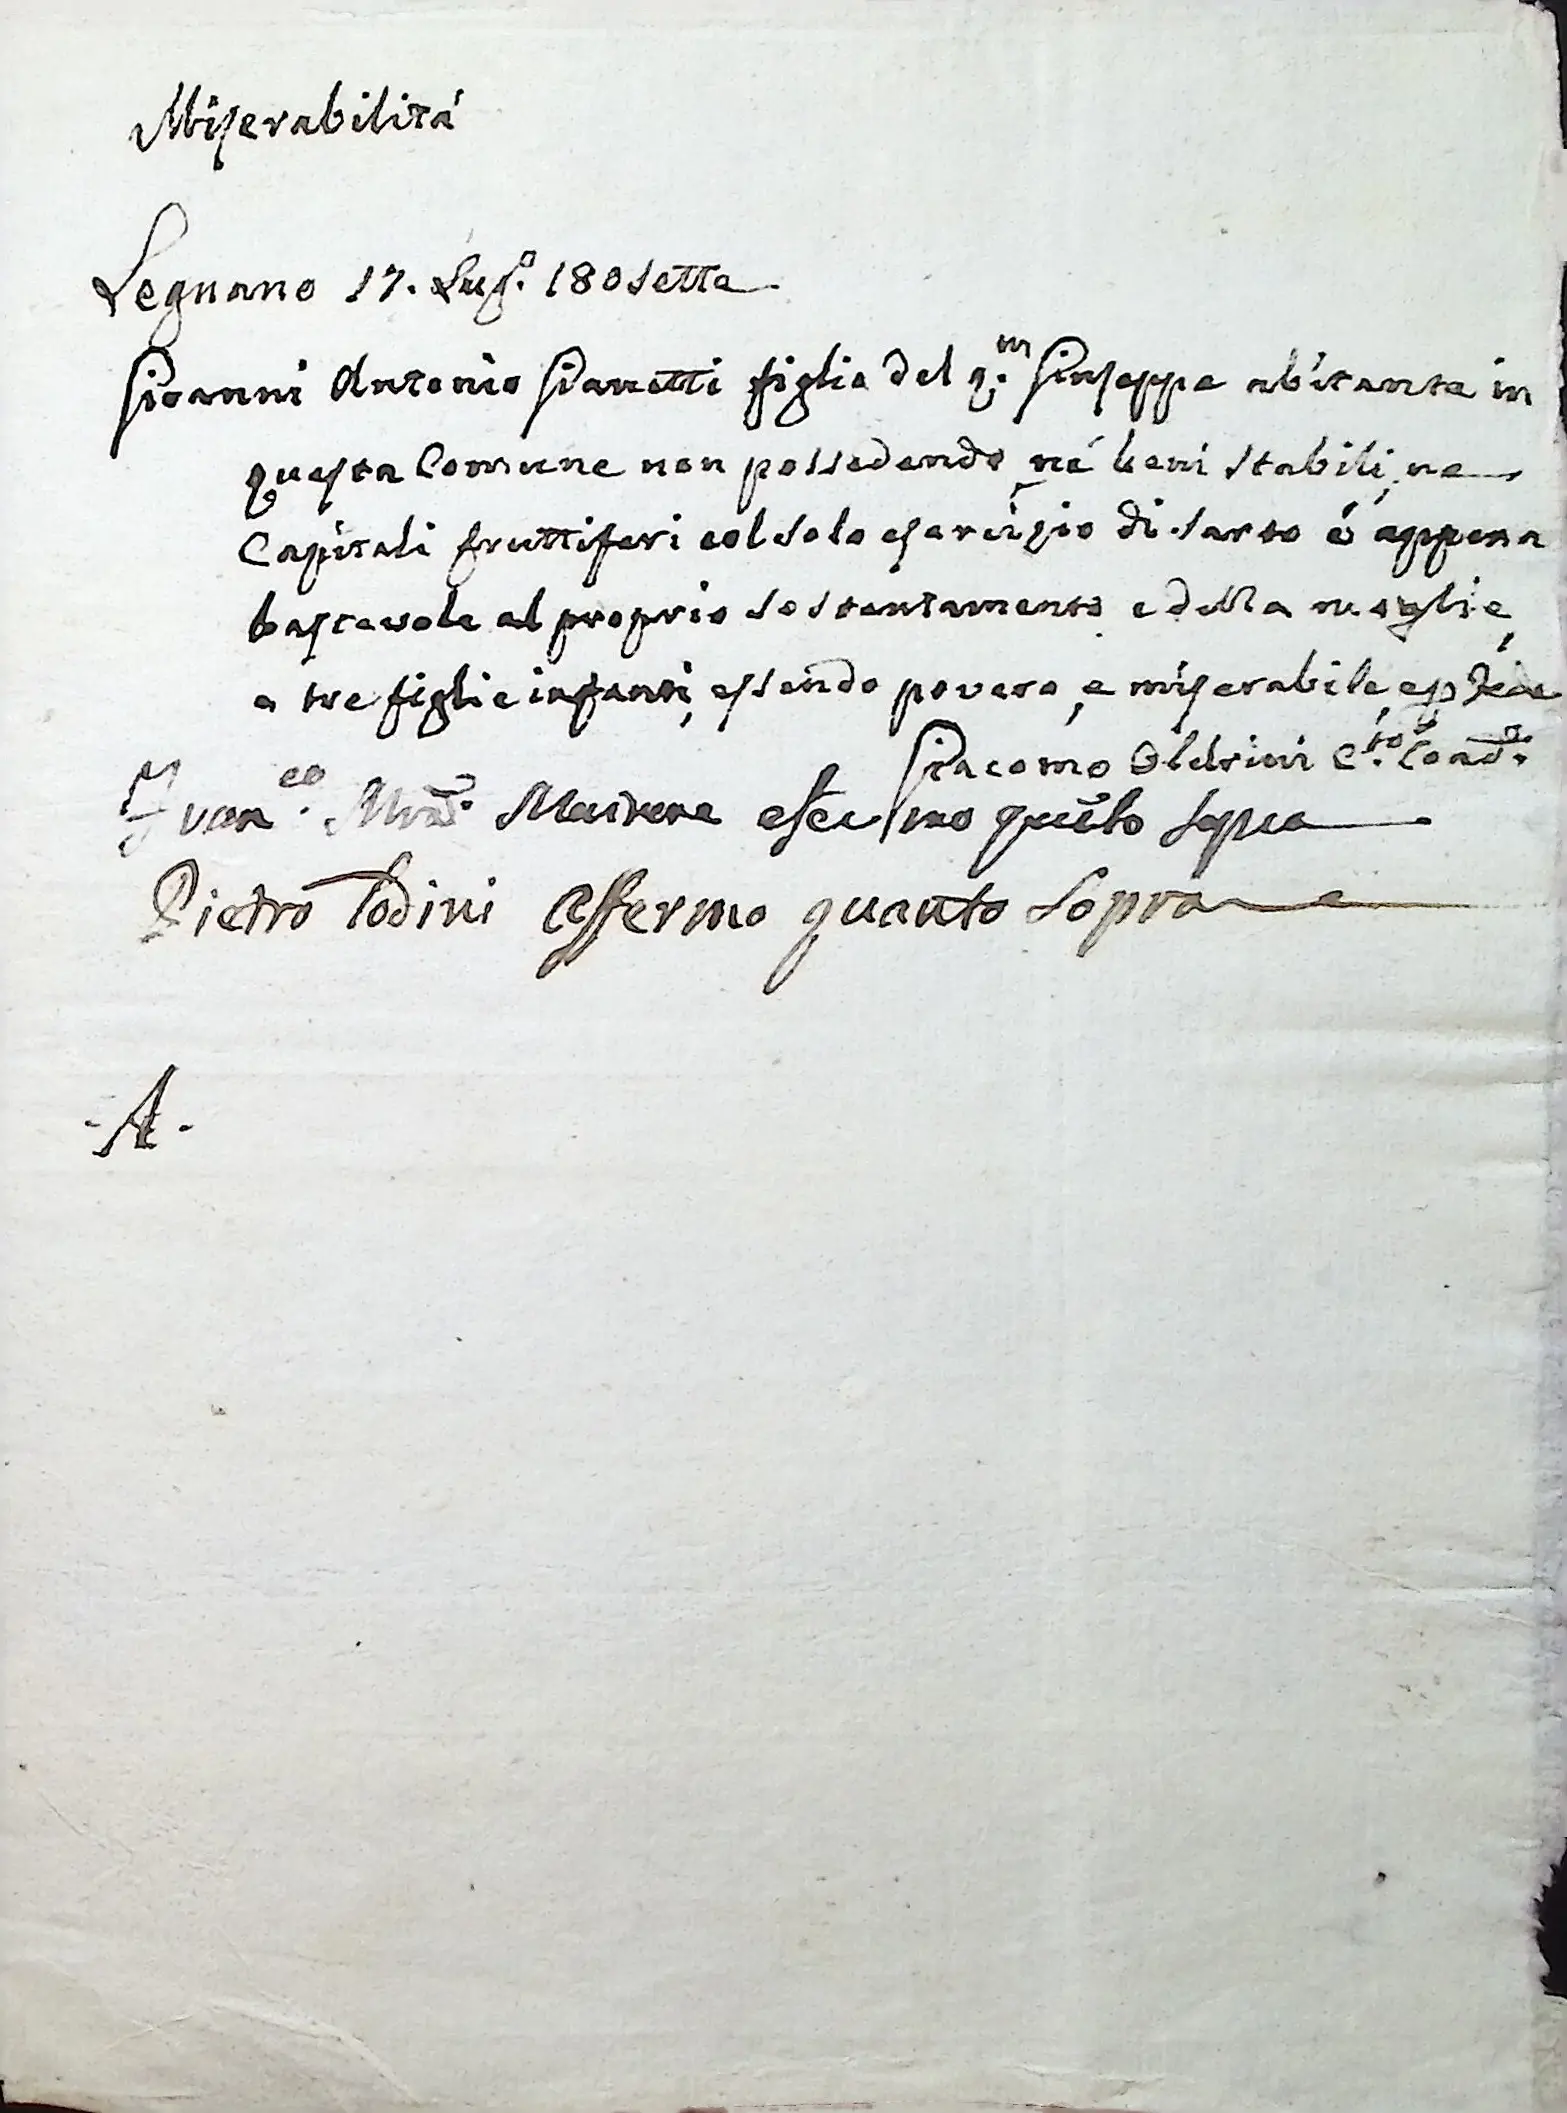 Miserabilità
Legnano 17. Lug.o 180sette
Gioanni Antonio Gianetti figlio del q.m Giuseppe abitante in
questa Comune non possedendo né beni stabili, ne
Capitali fruttiferi col solo esercizio di sarto é appena
bastevole al proprio sostentamento e della moglie,
e tre figlie infanti, essendo povero, e miserabile, e p fede
Giacomo Oldrini C.to Coad.e
Fran.co affermo quanto sopra
Pietro Todini Affermo quanto Sopra
-A-